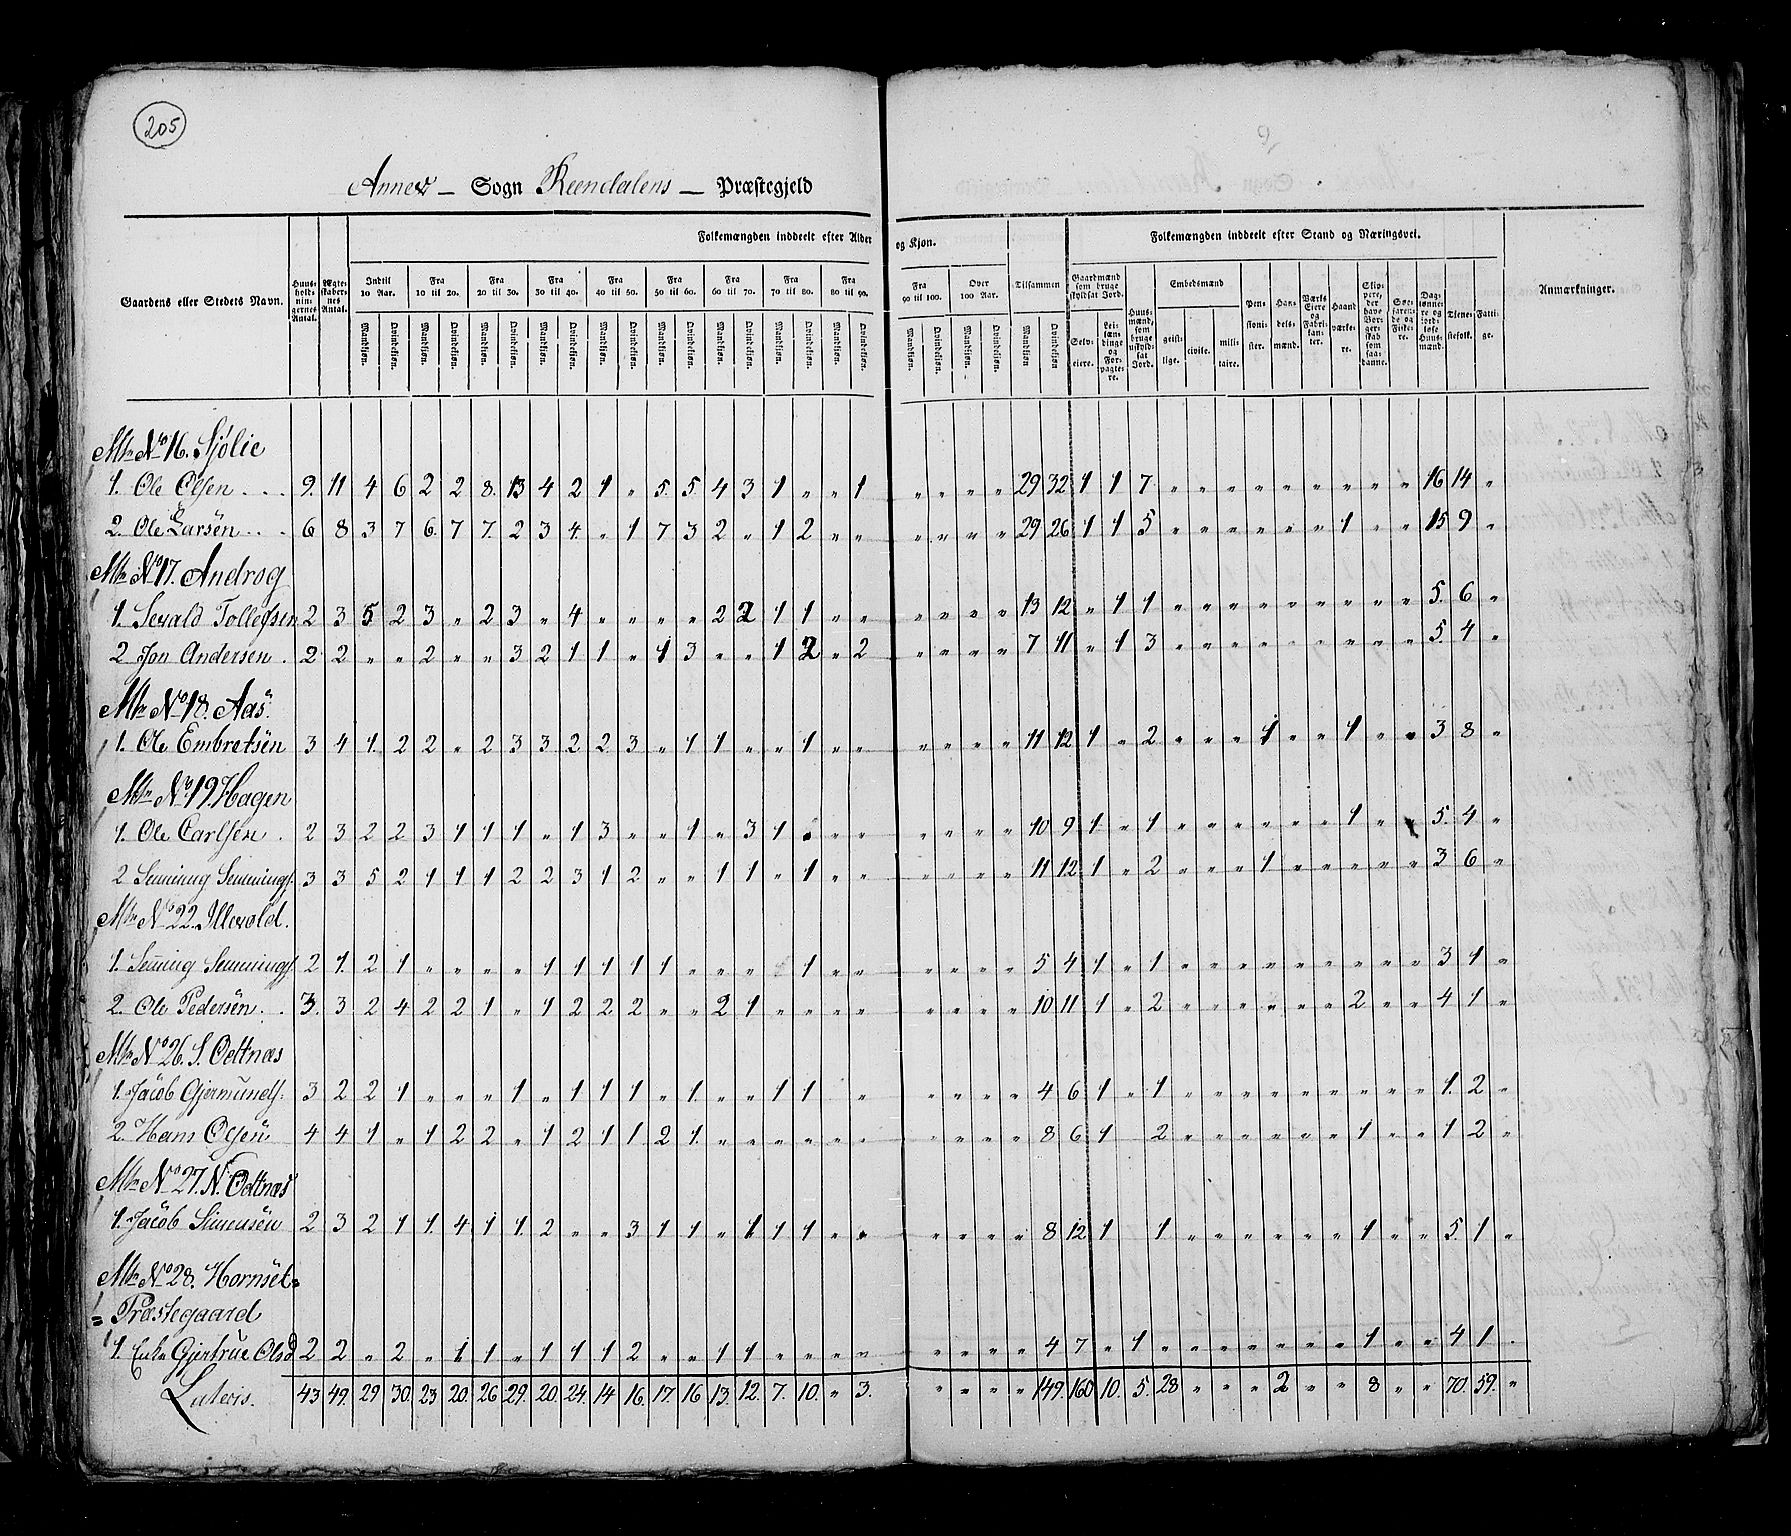 205
Annex — Sogn Reendalens — Præstegjeld
Folkemængden inddeelt efter Alder og Kjøn. Folkemængden inddeelt efter Stand og Næringsvei.
Gaardens eller Stedets Navn. Huusholdningernes Antal. Ægteskabernes Antal. Indtil 10 Aar. Fra 10 til 20. Fra 20 til 30. Fra 30 til 40. Fra 40 til 50. Fra 50 til 60. Fra 60 til 70. Fra 70 til 80. Fra 80 til 90. Fra 90 til 100. Over 100 Aar. Tilsammen Gaardmænd som bruge skyldsat Jord. Huusmænd, som bruge uskyldsat Jord. Embedsmænd Pensionister. Handelsmænd. Værks Eiere og Fabrikanter. Haandværkere. Skippere, der have Borgerskab som saadanne. Søefarende og Fiskere. Daglønnere og jordløse Huusmænd. Tjenestefolk. Fattige. Anmærkninger.
Mandkjøn. Qvindekjøn. Mandkjøn. Qvindekjøn. Mandkjøn. Qvindekjøn. Mandkjøn. Qvindekjøn. Mandkjøn. Qvindekjøn. Mandkjøn. Qvindekjøn. Mandkjøn. Qvindekjøn. Mandkjøn. Qvindekjøn. Mandkjøn. Qvindekjøn. Mandkjøn. Qvindekjøn. Mandkjøn. Qvindekjøn. Mandkjøn Qvindekjøn Selveiere. Leilændinge og Forpagtere. geistlige. civile. militaire.
Mtr No 16. Sjølie
1. Ole Olsen . . . 9. 11 4 6 2 2 8. 13 4 2 1 " 5. 5 4 3 1 " " 1 " " " " 29 32 1 1 7 " " " " " " " " " 16 14 "
2. Ole Larsen . . . 6 8 3 7 6. 7 7. 2 3 4. " 1 7 3 2 " 1 2 " " " " " " 29 26 1 1 5 " " " " " " 1 " " 15 9 "
Mtr No 17. Androg
1. Sevald Tollefsen 2 3 5 2 3 " 2 3 " 4 " " " " 2 2 1 1 " " " " " " 13 12 " 1 1 " " " " " " " " " 5. 6 "
2 Jon Andersen . 2 2 " " 2 " " 3 2 1 1 " 1 3 " " 1 2 " 2 " " " " 7 11 " 1 3 " " " " " " " " " 5. 4 "
Mtr No 18. Aas.
1. Ole Embretsen 3 4 1. 2 2 " 2 3 3 2 2 3 " 1 1 " " 1 " " " " " " 11 12 1 " 2 " " " 1 " " 1 " " 3 8 "
Mtr No 19. Hagen
1. Ole Carlsen . 2 3 2 2 3 1 1 1 " 1 3 " " 1 " 3 1 " " " " " " 10 9 1 " 1 " " " " " " 1 " 5. 4 "
2 Semming Semmings. 3 3 5 2 1 1 1 2 2 3 1 2 " " 1 1 " 1 " " " " " " 11 12 1 " 2 " " " 1 " " " " " 3 6 "
Mtr No 22. Illevold.
1. Semming Semmings. 2 1. 2 1 " " " " 1 1 1 1 1 " " " 1 " " " " " " 5 4 1 " 1 " " " " " " " " " 3 1 "
2. Ole Pedersen . . 3. 3 2 4 2 2 1 " 1 2 2 2 " " 2 1 " " " " " " " " 10 11 1 " 2 " " " " " " 2 " " 4 1 "
Mtr No 26. S. Oettnæs
1. Jacob Gjermunds. 3 2 2 1 " " " 1 " 1 1 1 " 1 " " 1 1 " " " " " 4 6 1 " 1 " " " " " " " " " 1. 2 "
2. Hans Olsen 4 4 1 " 1 2 2 " 1 2 1 1 2 1. " " " " " " " " " " 8 6 1 2 " " " " " " 1 " " 1 2 "
Mtr No 27. N. Oettnæs
1. Jacob Simensen 2 3 2 1 1. 4 1 1. 2 " " 3 1 1 " 1 1 1 " " " " " " 8 12 1 1 " " " " " " 1 " " 5. 1 "
Mtr No 28. Hornset=
= Præstegaard
1. Enke Gjertrue Olsd 2 2 " 2 " 1 1 " 1 1 1 2 " " 1 1 " " " " " " " " 4 7 " 1 " " " " " " " 1 " " 4 1 .
Lateris. 43 49. 29 30. 23 20. 26 29. 20. 24. 14 16. 17. 16 13. 12. 7. 10. " 3. " " " " 149. 160 10. 5. 28 " " " 2 " " 8 " " 70. 59. "